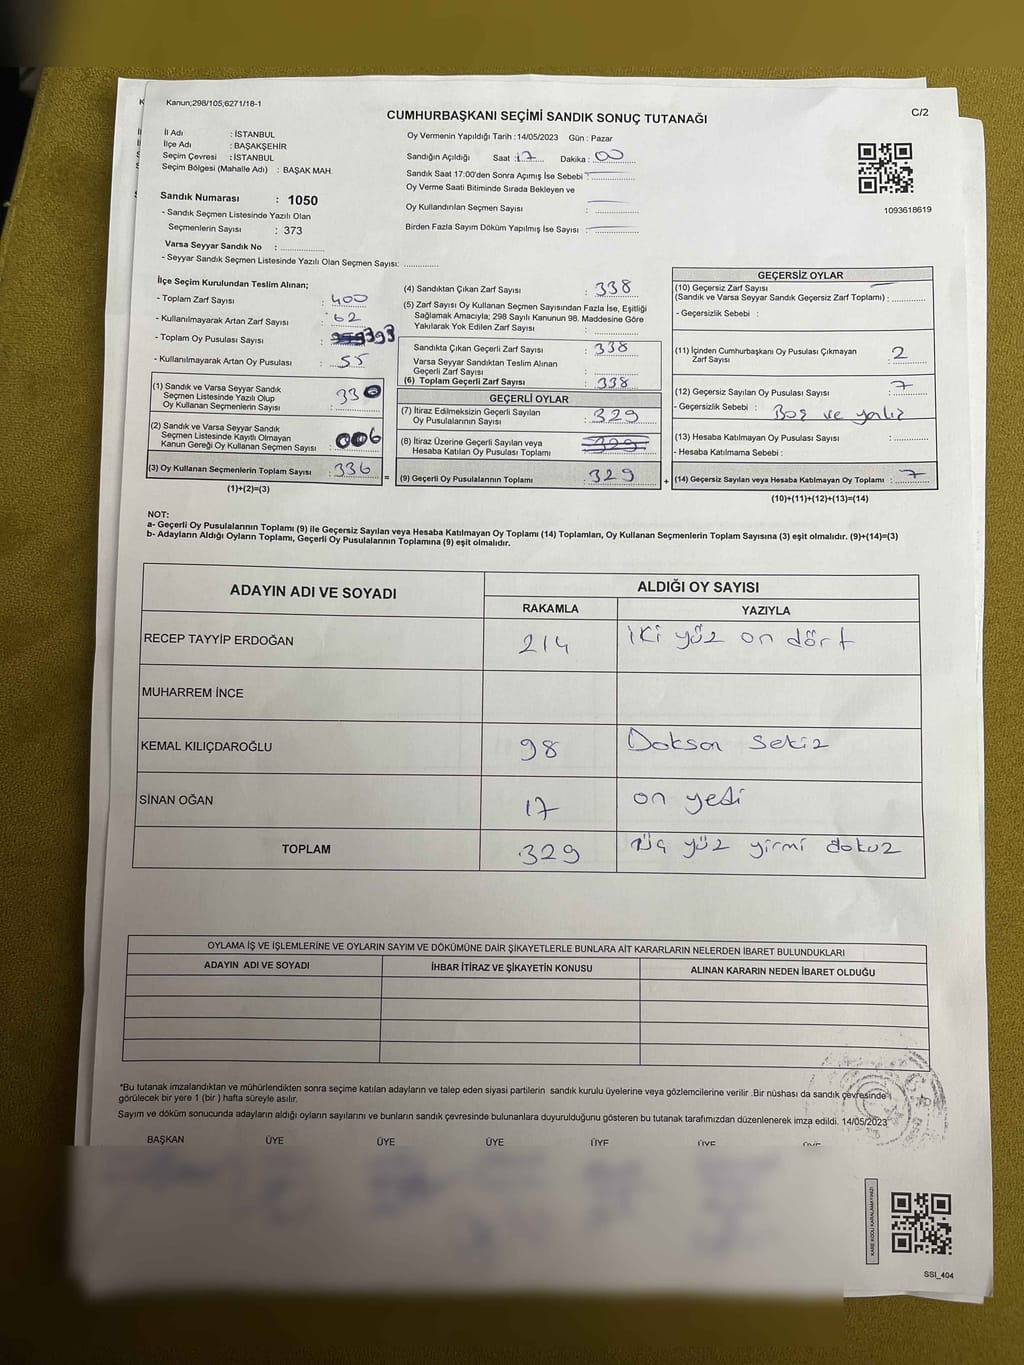 Kanun;298/105;6271/18-1
CUMHURBAŞKANI SEÇİMİ SANDIK SONUÇ TUTANAĞI
C/2
İl Adı : İSTANBUL
İlçe Adı : BAŞAKŞEHİR
Seçim Çevresi : İSTANBUL
Seçim Bölgesi (Mahalle Adı) : BAŞAK MAH.
Sandık Numarası : 1050
- Sandık Seçmen Listesinde Yazılı Olan
Seçmenlerin Sayısı : 373
Varsa Seyyar Sandık No :
- Seyyar Sandık Seçmen Listesinde Yazılı Olan Seçmen Sayısı:
Oy Vermenin Yapıldığı Tarih :14/05/2023 Gün : Pazar
Sandığın Açıldığı Saat :17 Dakika : 00
Sandık Saat 17:00'den Sonra Açımış İse Sebebi :
Oy Verme Saati Bitiminde Sırada Bekleyen ve
Oy Kullandırılan Seçmen Sayısı :
Birden Fazla Sayım Döküm Yapılmış İse Sayısı :
1093618619
İlçe Seçim Kurulundan Teslim Alınan;
- Toplam Zarf Sayısı : 400
- Kullanılmayarak Artan Zarf Sayısı : 62
- Toplam Oy Pusulası Sayısı : 393
- Kullanılmayarak Artan Oy Pusulası : 55
(1) Sandık ve Varsa Seyyar Sandık
Seçmen Listesinde Yazılı Olup
Oy Kullanan Seçmenlerin Sayısı : 330
(2) Sandık ve Varsa Seyyar Sandık
Seçmen Listesinde Kayıtlı Olmayan
Kanun Gereği Oy Kullanan Seçmen Sayısı : 006
(3) Oy Kullanan Seçmenlerin Toplam Sayısı : 336
(1)+(2)=(3)
(4) Sandıktan Çıkan Zarf Sayısı : 338
(5) Zarf Sayısı Oy Kullanan Seçmen Sayısından Fazla İse, Eşitliği
Sağlamak Amacıyla; 298 Sayılı Kanunun 98. Maddesine Göre
Yakılarak Yok Edilen Zarf Sayısı :
Sandıkta Çıkan Geçerli Zarf Sayısı : 338
Varsa Seyyar Sandıktan Teslim Alınan
Geçerli Zarf Sayısı :
(6) Toplam Geçerli Zarf Sayısı : 338
GEÇERLİ OYLAR
(7) İtiraz Edilmeksizin Geçerli Sayılan
Oy Pusulalarının Sayısı : 329
(8) İtiraz Üzerine Geçerli Sayılan veya
Hesaba Katılan Oy Pusulası Toplamı : 329
= (9) Geçerli Oy Pusulalarının Toplamı : 329 +
GEÇERSİZ OYLAR
(10) Geçersiz Zarf Sayısı
(Sandık ve Varsa Seyyar Sandık Geçersiz Zarf Toplamı) :
- Geçersizlik Sebebi :
(11) İçinden Cumhurbaşkanı Oy Pusulası Çıkmayan
Zarf Sayısı : 2
(12) Geçersiz Sayılan Oy Pusulası Sayısı : 7
- Geçersizlik Sebebi : Boş ve
(13) Hesaba Katılmayan Oy Pusulası Sayısı :
- Hesaba Katılmama Sebebi :
(14) Geçersiz Sayılan veya Hesaba Katılmayan Oy Toplamı : 7
(10)+(11)+(12)+(13)=(14)
NOT:
a- Geçerli Oy Pusulalarının Toplamı (9) ile Geçersiz Sayılan veya Hesaba Katılmayan Oy Toplamı (14) Toplamları, Oy Kullanan Seçmenlerin Toplam Sayısına (3) eşit olmalıdır. (9)+(14)=(3)
b- Adayların Aldığı Oyların Toplamı, Geçerli Oy Pusulalarının Toplamına (9) eşit olmalıdır.
ADAYIN ADI VE SOYADI ALDIĞI OY SAYISI
RAKAMLA YAZIYLA
RECEP TAYYİP ERDOĞAN 214 iki yüz on dört
MUHARREM İNCE
KEMAL KILIÇDAROĞLU 98 Doksan Sekiz
SİNAN OĞAN 17 on yedi
TOPLAM 329 üç yüz yirmi dokuz
OYLAMA İŞ VE İŞLEMLERİNE VE OYLARIN SAYIM VE DÖKÜMÜNE DAİR ŞİKAYETLERLE BUNLARA AİT KARARLARIN NELERDEN İBARET BULUNDUKLARI
ADAYIN ADI VE SOYADI İHBAR İTİRAZ VE ŞİKAYETİN KONUSU ALINAN KARARIN NEDEN İBARET OLDUĞU
*Bu tutanak imzalandıktan ve mühürlendikten sonra seçime katılan adayların ve talep eden siyasi partilerin sandık kurulu üyelerine veya gözlemcilerine verilir .Bir nüshası da sandık çevresinde
görülecek bir yere 1 (bir ) hafta süreyle asılır.
Sayım ve döküm sonucunda adayların aldığı oyların sayılarını ve bunların sandık çevresinde bulunanlara duyurulduğunu gösteren bu tutanak tarafımızdan düzenlenerek imza edildi. 14/05/2023
BAŞKAN ÜYE ÜYE ÜYE ÜYE ÜYE ÜYE
KARE KODU KARALAMAYINIZ!
SSI_404